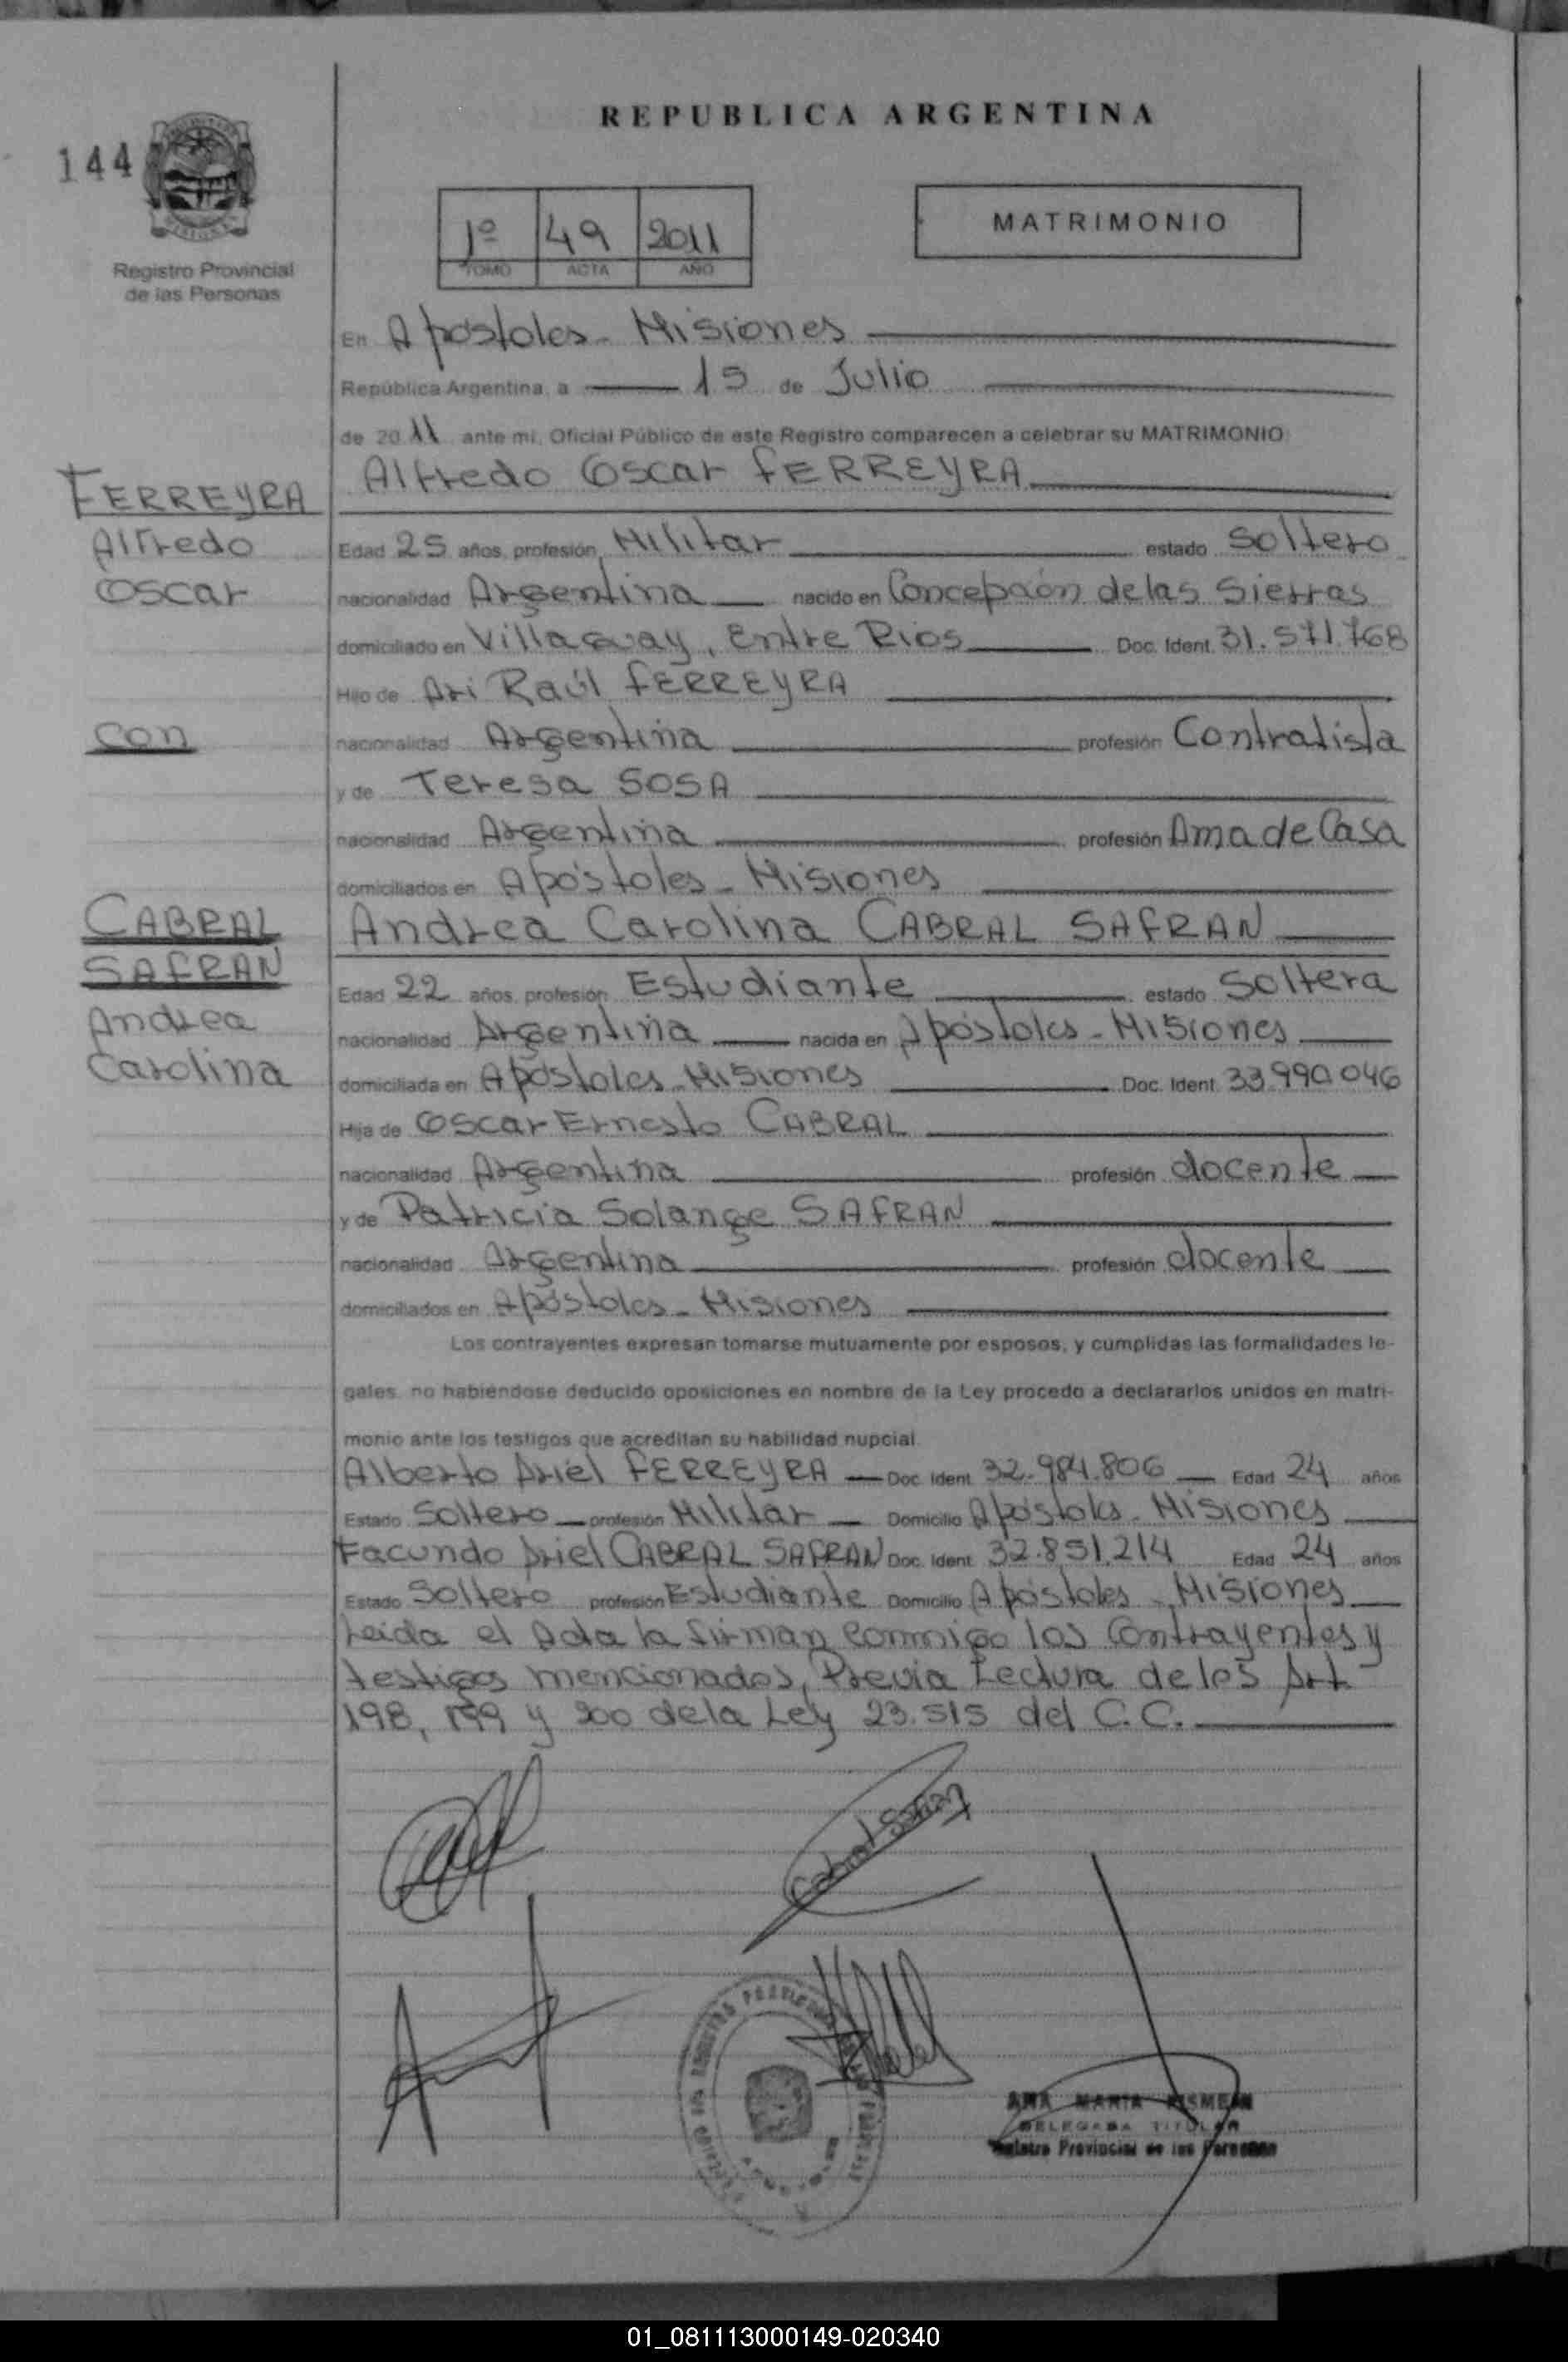 REPUBLICA ARGENTINA
144
Registro Provincial
de las Personas
1º 49 2011
TOMO ACTA AÑO
MATRIMONIO
En Apóstoles - Misiones
República Argentina, a 15 de Julio
de 2011 ante mi, Oficial Público de este Registro comparecen a celebrar su MATRIMONIO
Alfredo Oscar FERREYRA
FERREYRA
Alfredo
Oscar
con
CABRAL
SAFRAN
Andrea
Carolina
Edad 25 años, profesión Militar estado Soltero
nacionalidad Argentina nacido en Concepción de las Sierras
domiciliado en Villaguay, Entre Rios Doc. Ident. 31.571.768
Hijo de Ari Raúl FERREYRA
nacionalidad Argentina profesión Contratista
y de Teresa SOSA
nacionalidad Argentina profesión Ama de Casa
domiciliados en Apóstoles - Misiones
Andrea Carolina CABRAL SAFRAN
Edad 22 años, profesión Estudiante estado Soltera
nacionalidad Argentina nacida en Apóstoles - Misiones
domiciliada en Apóstoles - Misiones Doc. Ident. 33.990.046
Hija de Oscar Ernesto CABRAL
nacionalidad Argentina profesión docente
y de Patricia Solange SAFRAN
nacionalidad Argentina profesión docente
domiciliados en Apóstoles - Misiones
Los contrayentes expresan tomarse mutuamente por esposos, y cumplidas las formalidades le-
gales, no habiéndose deducido oposiciones en nombre de la Ley procedo a declararlos unidos en matri-
monio ante los testigos que acreditan su habilidad nupcial.
Alberto Ariel FERREYRA Doc. Ident. 32.984.806 Edad 24 años
Estado Soltero profesión Militar Domicilio Apóstoles - Misiones
Facundo Ariel CABRAL SAFRAN Doc. Ident. 32.851.214 Edad 24 años
Estado Soltero profesión Estudiante Domicilio Apóstoles - Misiones
Leida el Acta la firman conmigo los Contrayentes y
testigos mencionados, Previa Lectura de los Art
198, 199 y 200 de la Ley 23.515 del C.C.
Cabral Safran
ANA MARIA
DELEGADA TITULAR
Registro Provincial de las Personas
01_081113000149-020340